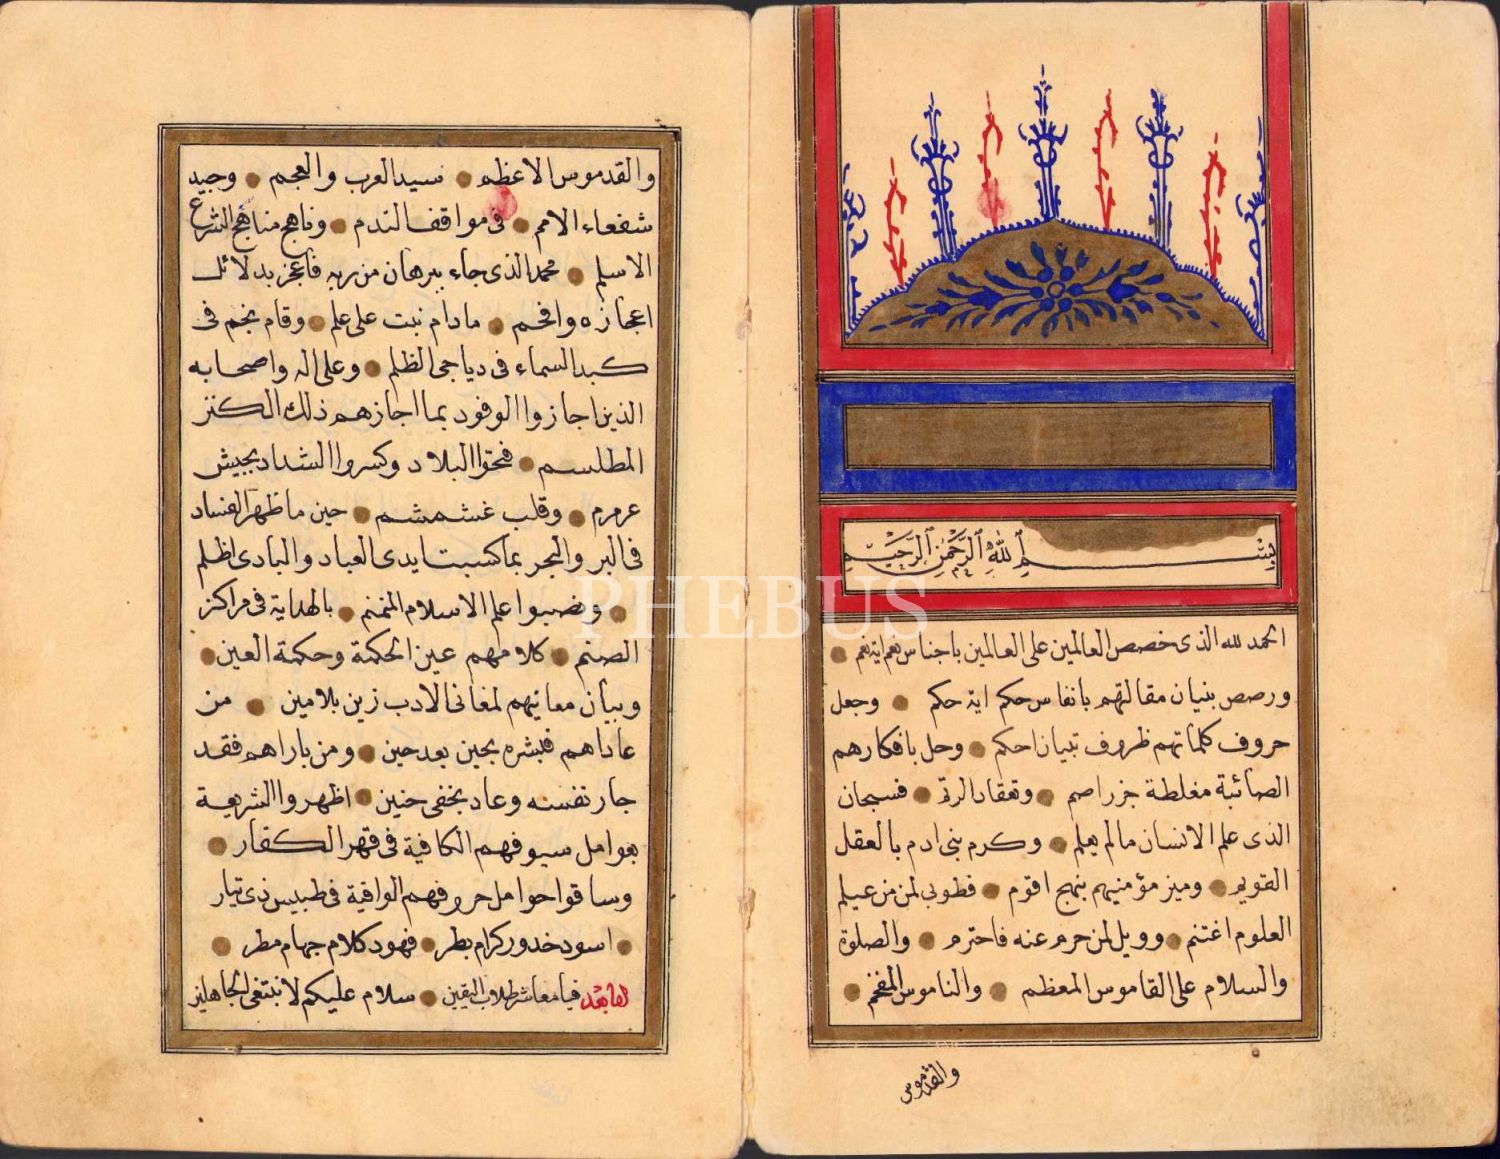 بسم الله الرحمن الرحيم
الحمد لله الذى خصص العالمين على العالمين باجناس هم ايتهم
ورصص بنيان مقالتهم بانفاس حكم اية حكم وجعل
حروف كلماتهم ظروف تبيان احكم وحل بافكارهم
الصائبة مغلطة جزر اصم وتعقاد الرتم فسبحان
الذى علم الانسان مالم يعلم وكرم بنى ادم بالعقل
القويم وميز مؤمنيهم بنهج اقوم فطوبى لمن من عيلم
العلوم اغتنم وويل لمن حرم عنه فاحترم والصلوة
والسلام على القاموس المعظم والناموس المفخم
والقدموس
والقدموس الاعظم سيد العرب والعجم وجيد
شفعاء الامم فى مواقف الندم وناهج مناهج الشرع
الاسلم محمد الذى جاء ببرهان من ربه فاعجز بدلائل
اعجازه وافحم مادام نبت على علم وقام نجم فى
كبد السماء فى دياجى الظلم وعلى اله واصحابه
الذين اجازوا الوفود بما اجازهم ذلك الكنز
المطلسم فتحوا البلاد وكسروا الشداد بجيش
عرمرم وقلب غشمشم حين ما ظهر الفساد
فى البر والبحر بما كسبت ايدى العباد والبادى اظلم
ونصبوا علم الاسلام المنمنم بالهداية فى مراكز
الصتم كلامهم عين الحكمة وحكمة العين
وبيان معانيهم لمغانى الادب زين بلامين من
عاداهم فبشره بحين بعد حين ومن باراهم فقد
جار نفسه وعاد بخفى حنين اظهروا الشريعة
بعوامل سيوفهم الكافية فى قهر الكفار
وساقوا حوامل حروفهم الوافية فى طبيس ذى تيار
اسود خدور كرام بطر فهود كلام جهام مطر
اما بعد فيا معاشر طلاب اليقين سلام عليكم لا نبتغى الجاهلين
PHEBUS